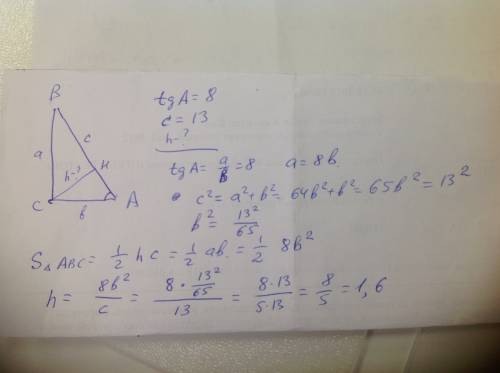 B
tgA = 8
c = 13
h-?
a
c
H
h-?
C
b
A
tgA = a/b = 8    a = 8b
c² = a² + b² = 64b² + b² = 65b² = 13²
b² = 13²/65
S△ABC = 1/2 hc = 1/2 ab = 1/2 8b²
h = 8b²/c = (8 · 13²/65)/13 = 8·13/5·13 = 8/5 = 1,6